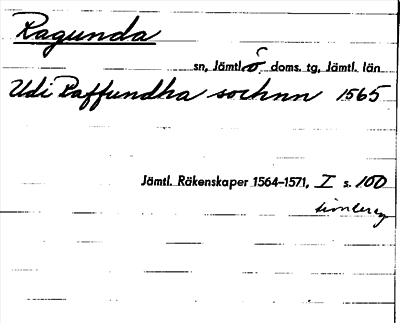 Ragunda
sn, Jämtl. ö. doms. tg, Jämtl. län
Udi Raffundha sochnn 1565
Jämtl. Räkenskaper 1564–1571, I s. 100